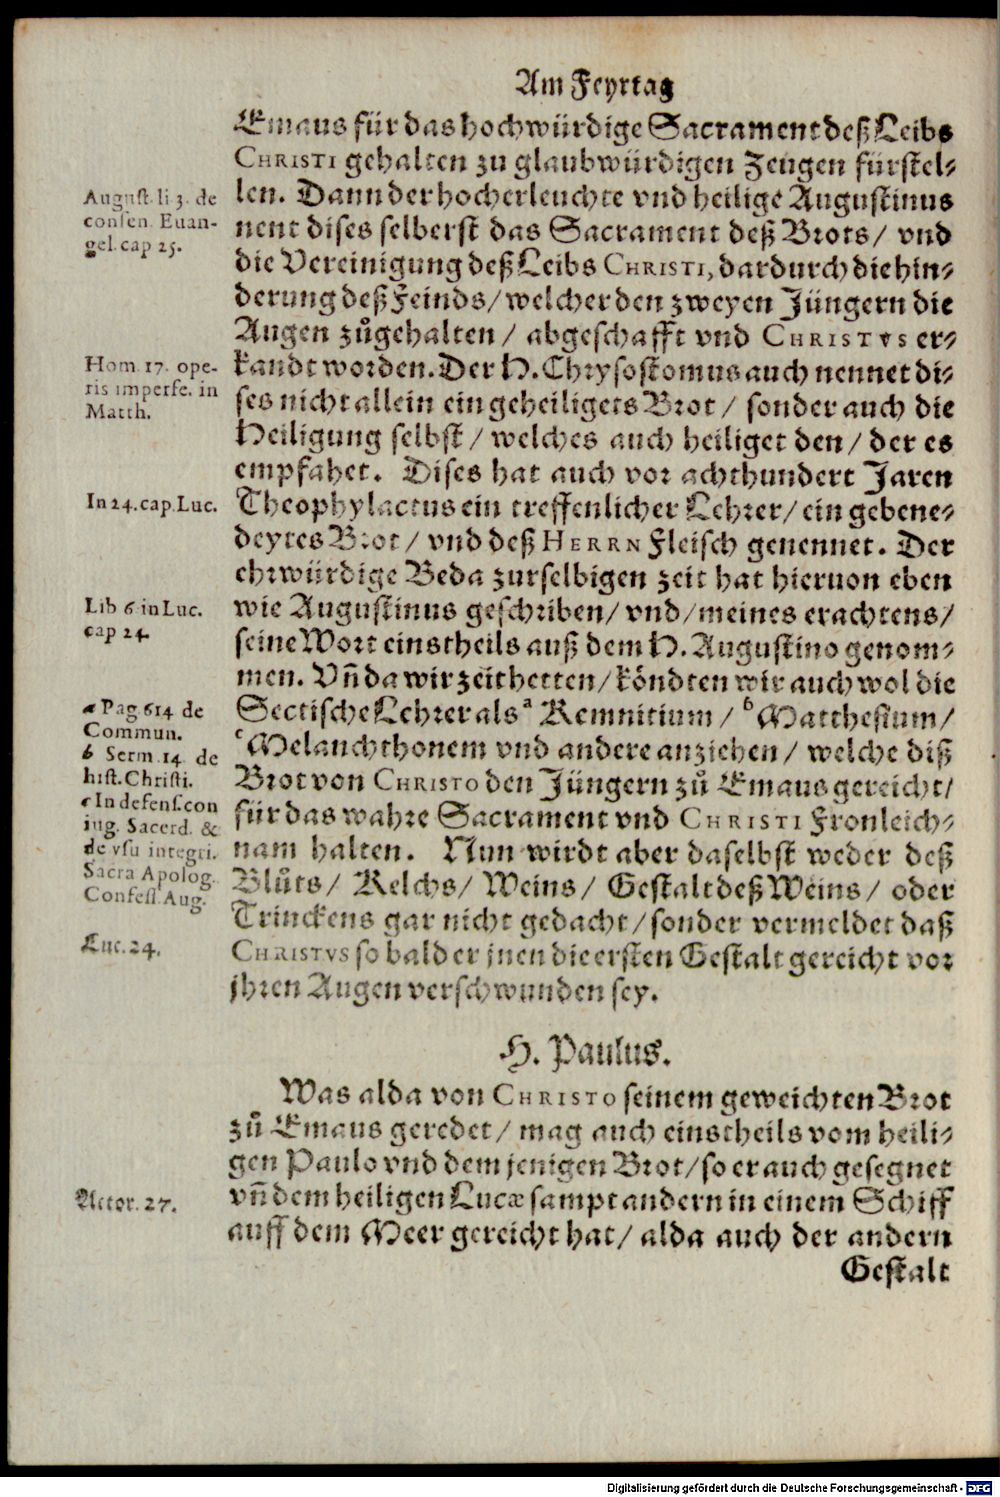 Am Feyrtag
Emaus für das hochwürdige Sacrament deß Leibs
CHRISTI gehalten zu glaubwürdigen Zeugen fürstel-
len. Dann der hocherleuchte vnd heilige Augustinus
nent dises selberst das Sacrament deß Brots/ vnd
die Vereinigung deß Leibs CHRISTI, dardurch die hin-
derung deß Feinds/ welcher den zweyen Jüngern die
Augen zůgehalten / abgeschafft vnd CHRISTVS er-
kandt worden. Der H. Chrysostomus auch nennet di-
ses nicht allein ein geheiligets Brot / sonder auch die
Heiligung selbst / welches auch heiliget den / der es
empfahet. Dises hat auch vor achthundert Jaren
Theophylactus ein treffenlicher Lehrer/ ein gebene-
deytes Brot / vnd deß HERRN Fleisch genennet. Der
ehrwürdige Beda zur selbigen zeit hat hieruon eben
wie Augustinus geschriben/ vnd/ meines erachtens/
seine Wort einstheils auß dem H. Augustino genom-
men. Vñ da wir zeit hetten/ köndten wir auch wol die
Sectische Lehrer als a Kemnitium / b Matthesium/
c Melanchthonem vnd andere anziehen / welche diß
Brot von CHRISTO den Jüngern zů Emaus gereicht/
für das wahre Sacrament vnd CHRISTI Fronleich-
nam halten. Nun wirdt aber daselbst weder deß
Blůts/ Kelchs/ Weins/ Gestalt deß Weins/ oder
Trinckens gar nicht gedacht / sonder vermeldet daß
CHRISTVS so bald er jnen die ersten Gestalt gereicht vor
jhren Augen verschwunden sey.
August. li 3. de
consen. Euan-
gel. cap 25.
Hom. 17. ope-
ris imperfe. in
Matth.
In 24. cap. Luc.
Lib 6 in Luc.
cap 24.
a Pag 614 de
Commun.
b Serm. 14. de
hist. Christi.
c In defens. con
iug. Sacerd. &
de vsu integri.
Sacra Apolog.
Confess. Aug.
Luc. 24.
H. Paulus.
Was alda von CHRISTO seinem geweichten Brot
zů Emaus geredet/ mag auch einstheils vom heili-
gen Paulo vnd dem jenigen Brot/ so er auch gesegnet
vñ dem heiligen Lucæ sampt andern in einem Schiff
auff dem Meer gereicht hat/ alda auch der andern
Actor. 27.
Gestalt
Digitalisierung gefördert durch die Deutsche Forschungsgemeinschaft - DFG